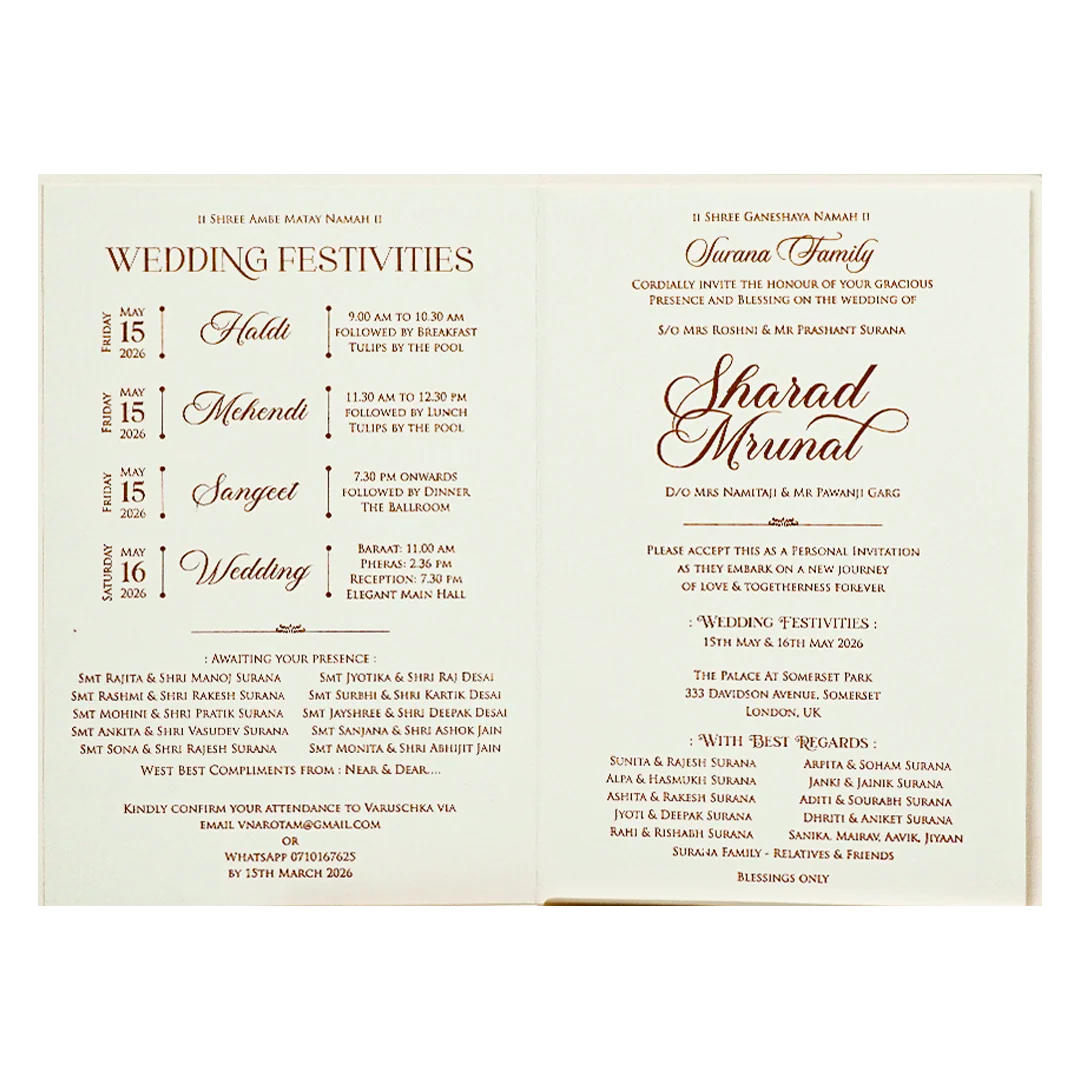 II Shree Ambe Matay Namah II
WEDDING FESTIVITIES
FRIDAY
MAY
15
2026
Haldi
9.00 AM TO 10.30 AM
FOLLOWED BY BREAKFAST
TULIPS BY THE POOL
FRIDAY
MAY
15
2026
Mehendi
11.30 AM TO 12.30 PM
FOLLOWED BY LUNCH
TULIPS BY THE POOL
FRIDAY
MAY
15
2026
Sangeet
7.30 PM ONWARDS
FOLLOWED BY DINNER
THE BALLROOM
SATURDAY
MAY
16
2026
Wedding
BARAAT: 11.00 AM
PHERAS: 2.36 PM
RECEPTION: 7.30 PM
ELEGANT MAIN HALL
: AWAITING YOUR PRESENCE :
SMT RAJITA & SHRI MANOJ SURANA
SMT RASHMI & SHRI RAKESH SURANA
SMT MOHINI & SHRI PRATIK SURANA
SMT ANKITA & SHRI VASUDEV SURANA
SMT SONA & SHRI RAJESH SURANA
SMT JYOTIKA & SHRI RAJ DESAI
SMT SURBHI & SHRI KARTIK DESAI
SMT JAYSHREE & SHRI DEEPAK DESAI
SMT SANJANA & SHRI ASHOK JAIN
SMT MONITA & SHRI ABHIJIT JAIN
WEST BEST COMPLIMENTS FROM : NEAR & DEAR....
KINDLY CONFIRM YOUR ATTENDANCE TO VARUSCHKA VIA
EMAIL VNAROTAM@GMAIL.COM
OR
WHATSAPP 0710167625
BY 15TH MARCH 2026
II SHREE GANESHAYA NAMAH II
Surana Family
CORDIALLY INVITE THE HONOUR OF YOUR GRACIOUS
PRESENCE AND BLESSING ON THE WEDDING OF
S/O MRS ROSHNI & MR PRASHANT SURANA
Sharad
Mrunal
D/O MRS NAMITAJI & MR PAWANJI GARG
PLEASE ACCEPT THIS AS A PERSONAL INVITATION
AS THEY EMBARK ON A NEW JOURNEY
OF LOVE & TOGETHERNESS FOREVER
: WEDDING FESTIVITIES :
15TH MAY & 16TH MAY 2026
THE PALACE AT SOMERSET PARK
333 DAVIDSON AVENUE, SOMERSET
LONDON, UK
: WITH BEST REGARDS :
SUNITA & RAJESH SURANA
ALPA & HASMUKH SURANA
ASHITA & RAKESH SURANA
JYOTI & DEEPAK SURANA
RAHI & RISHABH SURANA
ARPITA & SOHAM SURANA
JANKI & JAINIK SURANA
ADITI & SOURABH SURANA
DHRITI & ANIKET SURANA
SANIKA, MAIRAV, AAVIK, JIYAAN
SURANA FAMILY - RELATIVES & FRIENDS
BLESSINGS ONLY